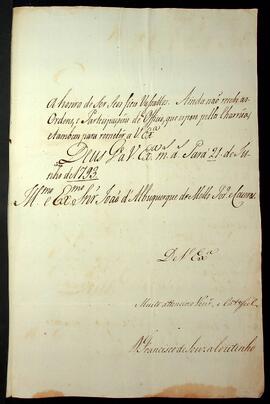 A honra de Ser Seus fieis Vassallos. Ainda não recebi as
Ordens, e Participaçoens de Officio, que espero pella Charrua,
e tambem para remeter a V Ex.ª
Deus G.e a V. Ex.ª m.s a.s Pará 21 de Ju-
nho de 1793
Ill.mo e Ex.mo Snr' João d'Albuquerque de Mello Per.ª e Caceres
D V. Ex.ª
Muito attencioso Ven.or
D. Francisco de Souza Coutinho